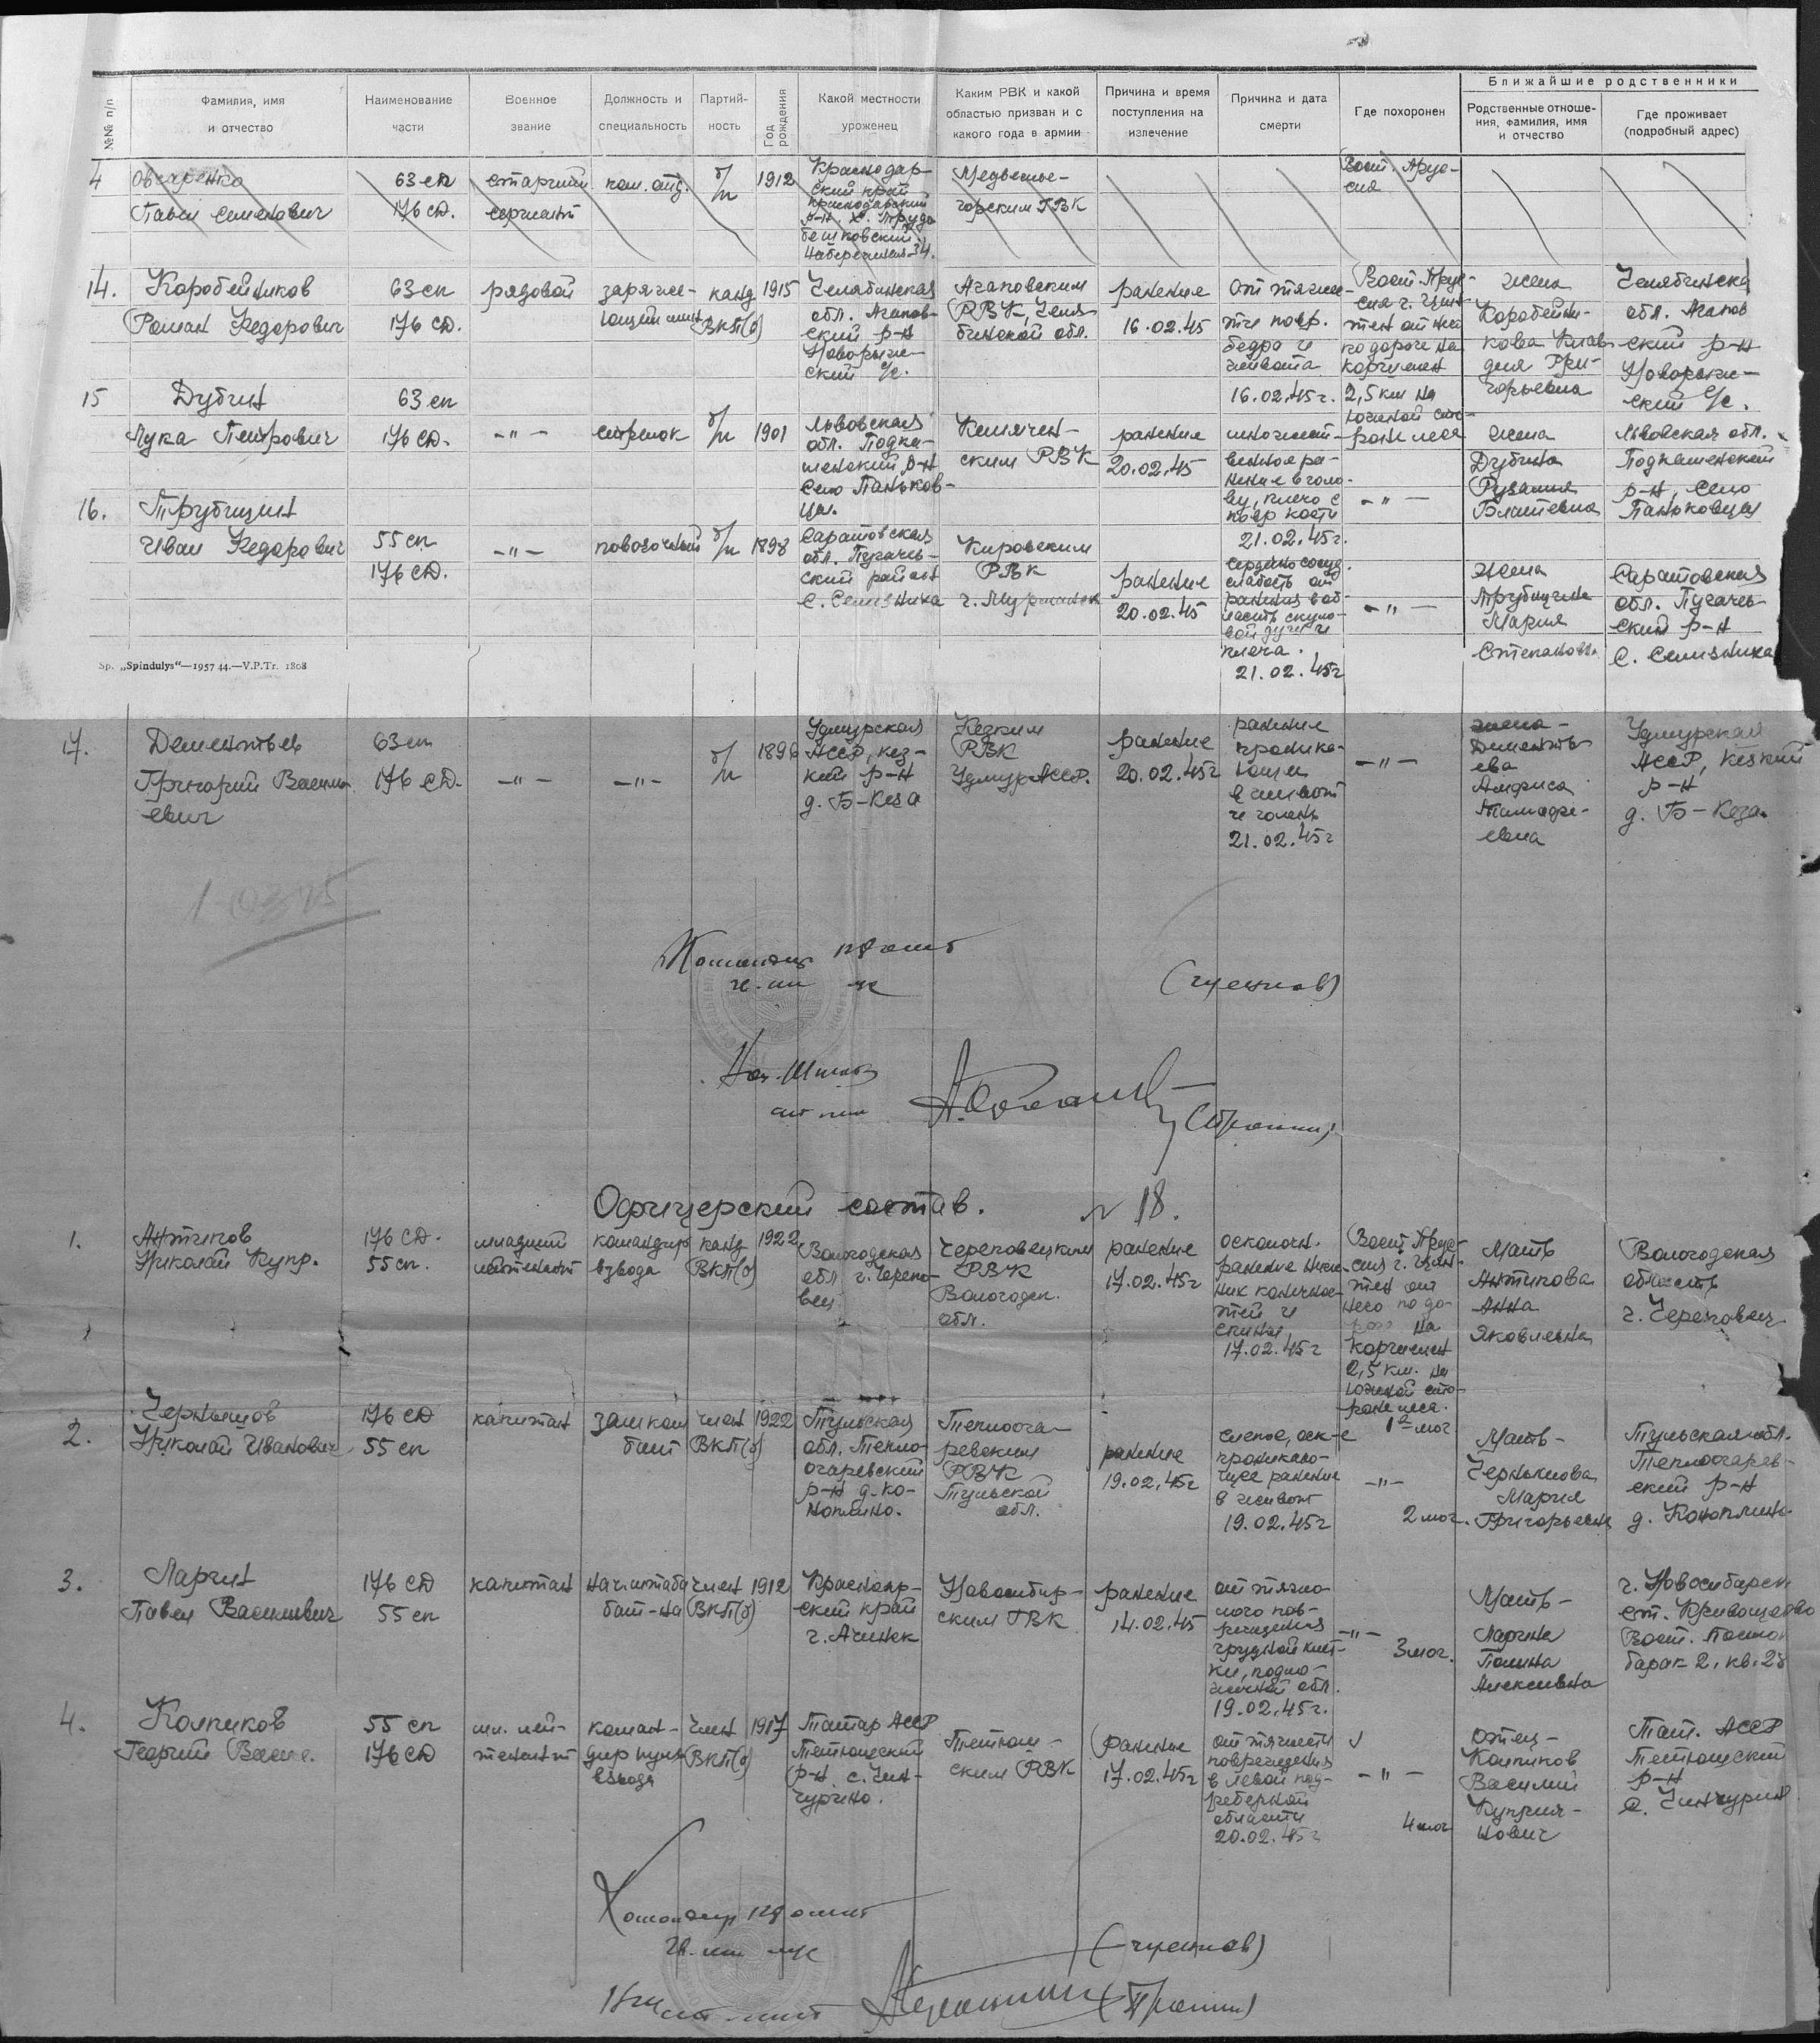 №№ п/п
Фамилия, имя и отчество
Наименование части
Военное звание
Должность и специальность
Партийность
Год рождения
Какой местности уроженец
Каким РВК и какой областью призван и с какого года в армии
Причина и время поступления на излечение
Причина и дата смерти
Где похоронен
Ближайшие родственники
Родственные отношения, фамилия, имя и отчество
Где проживает (подробный адрес)
4 Овчаренко Павел Семенович
63 сп 176 сд.
старший сержант
ком. отд.
б/п
1912
Краснодарский край
Краснодарский р-н х.
Набережная 34.
Медвежьегорским ГВК
Вост. Пруссия
14. Коробейников Роман Федорович
63 сп 176 сд.
рядовой
заряжающий мин.
канд ВКП(б)
1915
Челябинская обл. Агаповский р-н
с/с.
Агаповским РВК, Челябинской обл.
ранение 16.02.45
от тяже- сти повр. бедра и живота 16.02.45г.
Вост. Пруссия г. Цинтен от него по дороге на Коршенен 2,5 км на южной стороне леса
жена Коробейникова Клавдия Григорьевна
Челябинска обл. Агаповский р-н
с/с.
15 Дубин Лука Петрович
63 сп 176 сд.
-"-
стрелок
б/п
1901
Львовская обл. Подкаменский р-н село Паньковцы.
РВК
ранение 20.02.45
множественное ранение в голову, плечо с повр кости 21.02.45г.
-"-
жена Дубина
Львовская обл. Подкаменский р-н, село Паньковцы
16. Трубицин Иван Федорович
55 сп 176 сд.
-"-
повозочный
б/п
1898
Саратовская обл. Пугачевский район
Кировским РВК г. Мурманск
ранение 20.02.45
слабость от ранения в область скуловой дуги и плеча. 21.02.45г
-"-
жена Трубицина Мария Степановна
Саратовская обл. Пугачевский р-н
Sp. „Spindulys“—1957 44.—V.P.Tr. 1808
17. Дементьев Григорий Васильевич
63 сп 176 сд.
-"-
-"-
б/п
1896
Удмурская АССР, кезкий р-н д. Б-Кеза
Кезким РВК Удмур АССР.
ранение 20.02.45г
ранение проникающее в живот и голень 21.02.45г
-"-
жена - Дементьева Анфиса
Удмурская АССР, Кезкий р-н д. Б-Кеза.
Командир
Нач. Штаба
Офицерский состав. 18.
1. Антипов Николай Купр.
176 сд. 55 сп.
младший лейтенант
командир взвода
канд ВКП(б)
1922
Вологодская обл г. Череповец
Череповецким РВК Вологодск. обл.
ранение 17.02.45г
осколочн. ранение нижних конечностей и спины 17.02.45г
Вост. Пруссия г. Цинтен от него по дороге на Коршенен 2,5 км. на южной стороне леса. 1я мог.
Мать Антипова Анна Яковлевна
Вологодская область г. Череповец
2. Чернышов Николай Иванович
176 сд 55 сп
капитан
зам ком бат
член ВКП(б)
1922
Тульская обл. Тепло-огаревский р-н д. Коноплино.
Теплоогаревским РВК Тульской обл.
ранение 19.02.45г
слепое, оск-е проникающее ранение в живот 19.02.45г
-"- 2 мог.
Мать - Чернышова Мария Григорьевна
Тульская обл. Теплоогаревский р-н д. Коноплино
3. Ларин Павел Васильевич
176 сд 55 сп
капитан
нач штаба бат-на
член ВКП(б)
1912
Красноярский край г. Ачинск
Новосибирским ГВК
ранение 14.02.45
от тяжелого повреждения грудной клетки, подмышечной обл. 19.02.45г.
-"- 3 мог.
Мать - Ларина Полина Алексеевна
г. Новосибирск ст. Кривощеково барак 2, кв. 28
4. Колпиков Георгий Васил.
55 сп 176 сд
мл. лейтенант
командир пул. взвода
член ВКП(б)
1917
Татар АССР Тетюшский р-н
Тетюшским РВК
ранение 17.02.45г
от тяжести повреждения в левой подреберной области 20.02.45г
-"- 4 мог
Отец - Колпиков Василий Куприянович
Тат. АССР Тетюшский р-н
Командир